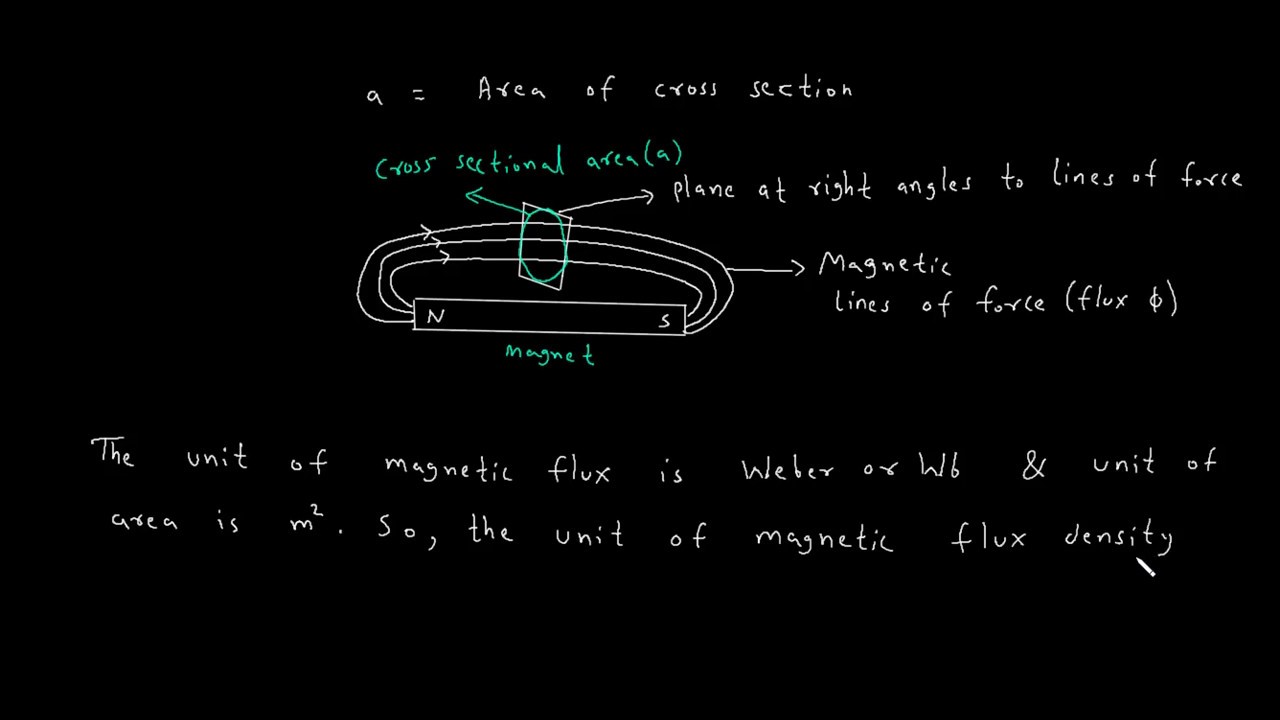 a = Area of cross section
cross sectional area(a)
plane at right angles to lines of force
Magnetic
lines of force (flux ϕ)
N
S
magnet
The unit of magnetic flux is Weber or Wb & unit of
area is m². So, the unit of magnetic flux density